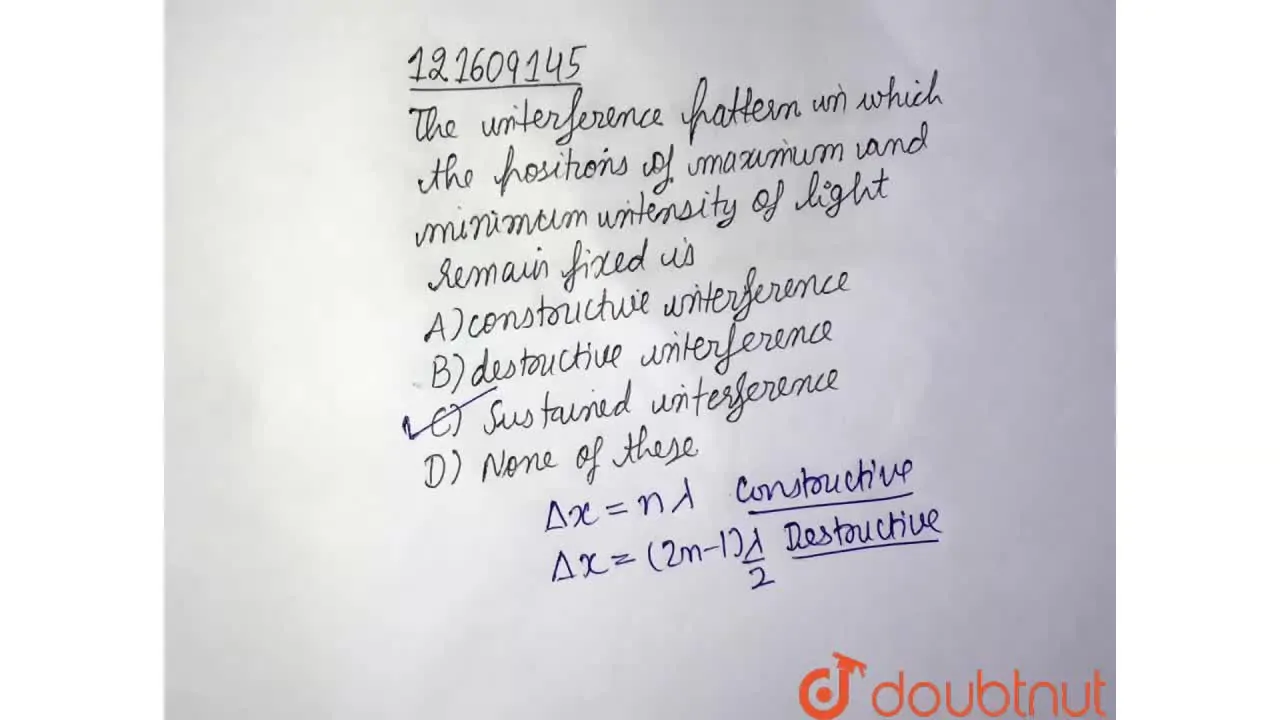 121609145
The interference pattern in which
the positions of maximum and
minimum intensity of light
remain fixed is
A) constructive interference
B) destructive interference
C) Sustained interference
D) None of these
Δx = nλ Constructive
Δx = (2n-1)λ/2 Destructive
doubtnut